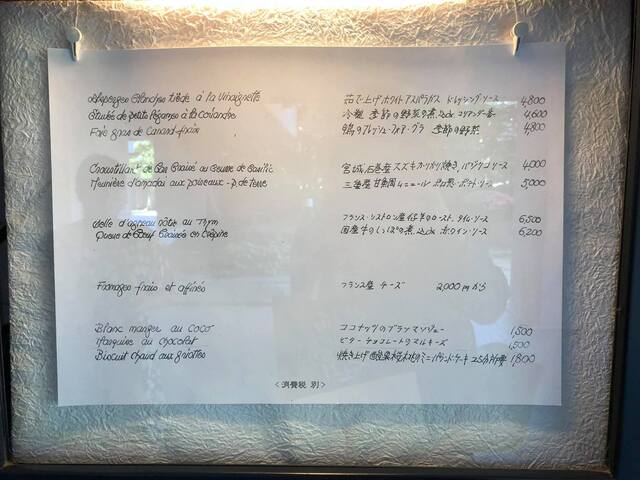 Asperges blanches tiède à la Vinaigrette 茹で上げホワイトアスパラガス ドレッシング・ソース 4,800
Etuvée de petits légumes à la coriandre 冷製 季節の野菜の煮込み コリアンダー香 4,600
Foie gras de Canard frais 鴨のフレッシュ・フォア・グラ 季節の野菜 4,800
Croustillant de Bar Braisé au Beurre de Basilic 宮城石巻産スズキカリカリ焼き バジリコソース 4,000
Meunière d'amadai aux poireaux - p. de terre 三重産甘鯛ムニエル ポロ葱・ポテト・ソース 5,000
Selle d'agneau rôtie au Thym フランス・シストロン産仔羊のロースト、タイム・ソース 6,500
Queue de Bœuf Braisée en Crépine 国産牛のしっぽの煮込み 赤ワイン・ソース 6,200
Fromages frais et affinés フランス産 チーズ 2,000円から
Blanc manger au COCO ココナッツのブランマンジェー 1,500
Marquise au chocolat ビター チョコレートのマルキーズ 1,500
Biscuit chaud aux griottes 焼き上げ 桜桃のミニパウンドケーキ 25分所要 1,800
<消費税 別>